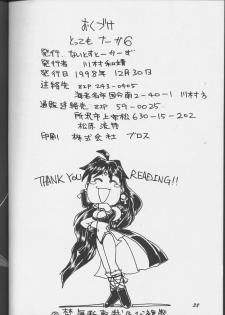 おくづけ
とっても ナーガ6
発行.
発行者 川村和晴
発行日 1998年 12月30日
連絡先 ZIP 243-0405
海老名市国分南2-40-1 川村方
通販連絡先 ZIP 359-0025
所沢市上安松 630-15-202
印刷 株式会社 プロス
THANK YOU READING!!